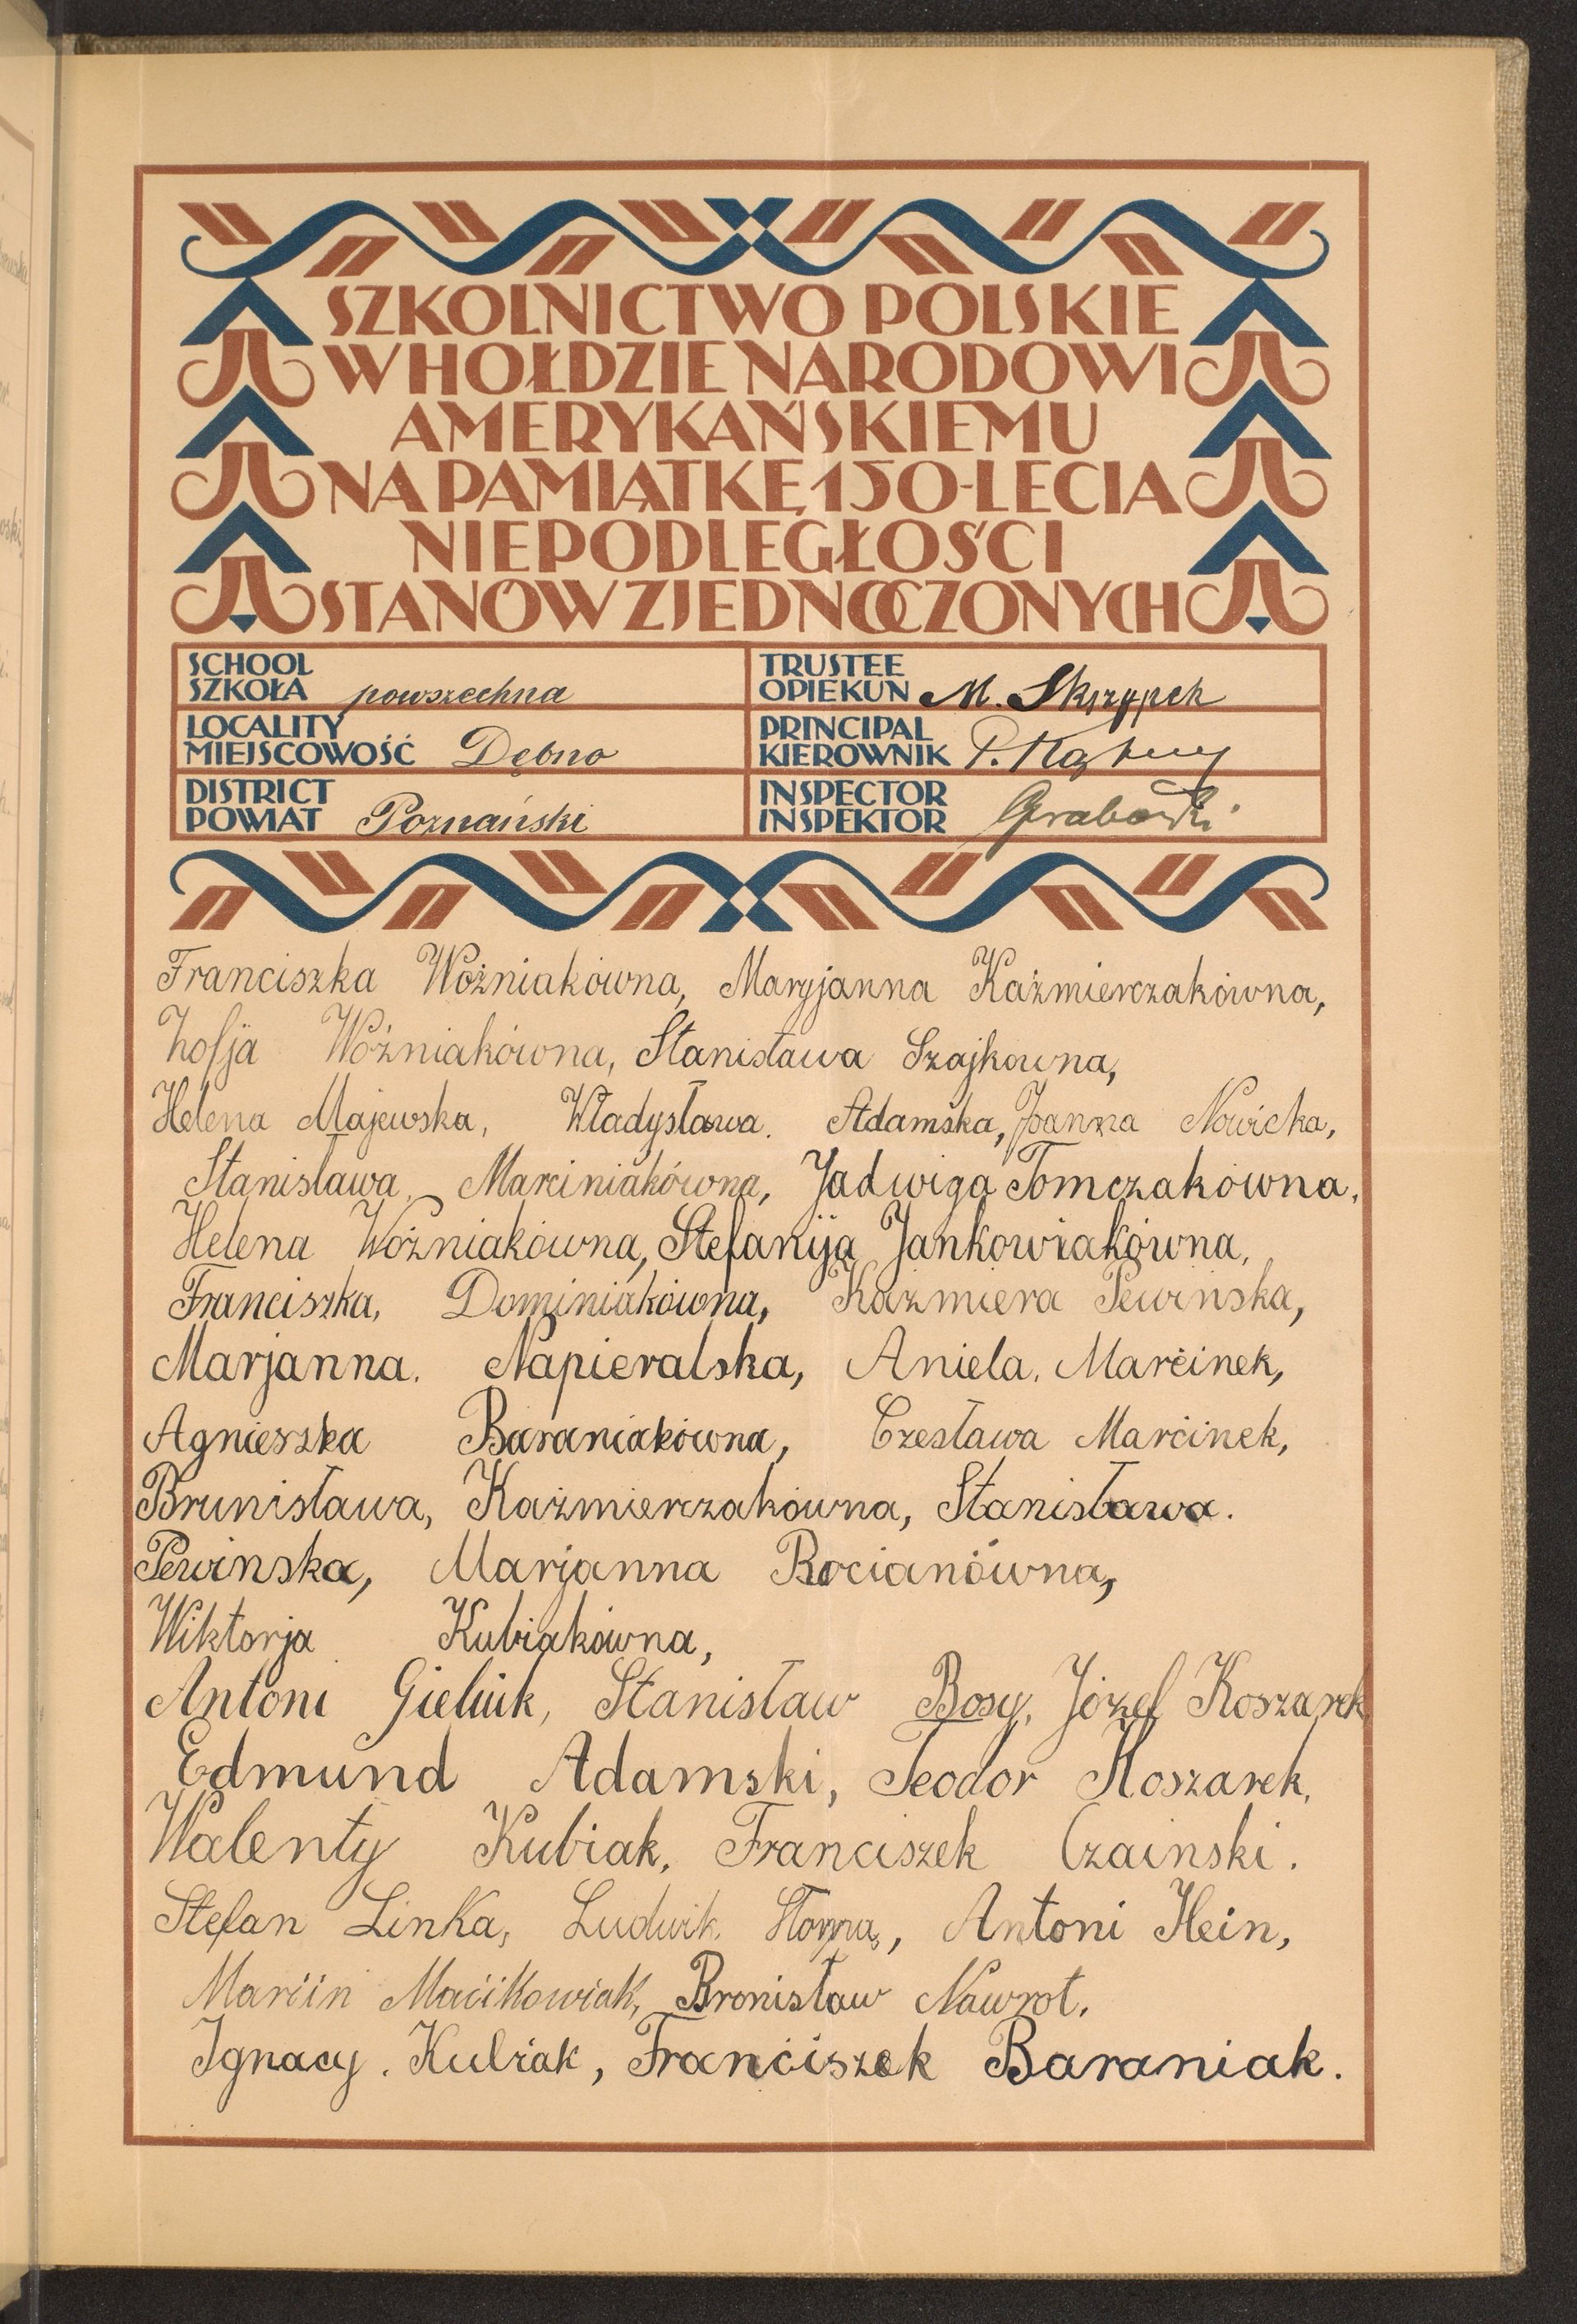 SZKOLNICTWO POLSKIE
W HOŁDZIE NARODOWI
AMERYKAŃSKIEMU
NA PAMIĄTKĘ 150-LECIA
NIEPODLEGŁOŚCI
STANÓW ZJEDNOCZONYCH
SCHOOL
SZKOŁA powszechna
TRUSTEE
OPIEKUN M. Skrzypek
LOCALITY
MIEJSCOWOŚĆ Dębno
PRINCIPAL
KIEROWNIK P.
DISTRICT
POWIAT Poznański
INSPECTOR
INSPEKTOR Grabowski
Franciszka Woźniakówna, Maryjanna Kaźmierczakówna,
Zofja Woźniakówna, Stanisława Szajkowna,
Helena Majewska, Władysława. Adamska, Joanna Nowicka,
Stanisława, Marciniakówna, Jadwiga Tomczakówna,
Helena Woźniakówna, Stefanija Jankowiakówna,
Franciszka, Dominiakówna, Kaźmiera Pewinska,
Marjanna. Napieralska, Aniela. Marcinek,
Agnieszka Baraniakówna, Czesława Marcinek,
Brunisława, Kaźmierczakówna, Stanisława.
Pewinska, Marjanna Bocianówna,
Wiktorja Kubiakówna,
Antoni Stanisław Bosy, Józef Koszarek
Edmund Adamski, Teodor Koszarek,
Walenty Kubiak, Franciszek Czainski.
Stefan Linka, Ludwik Antoni Hein,
Marcin Macikowiak, Bronisław Nawrot.
Ignacy. Kubiak, Franciszek Baraniak.